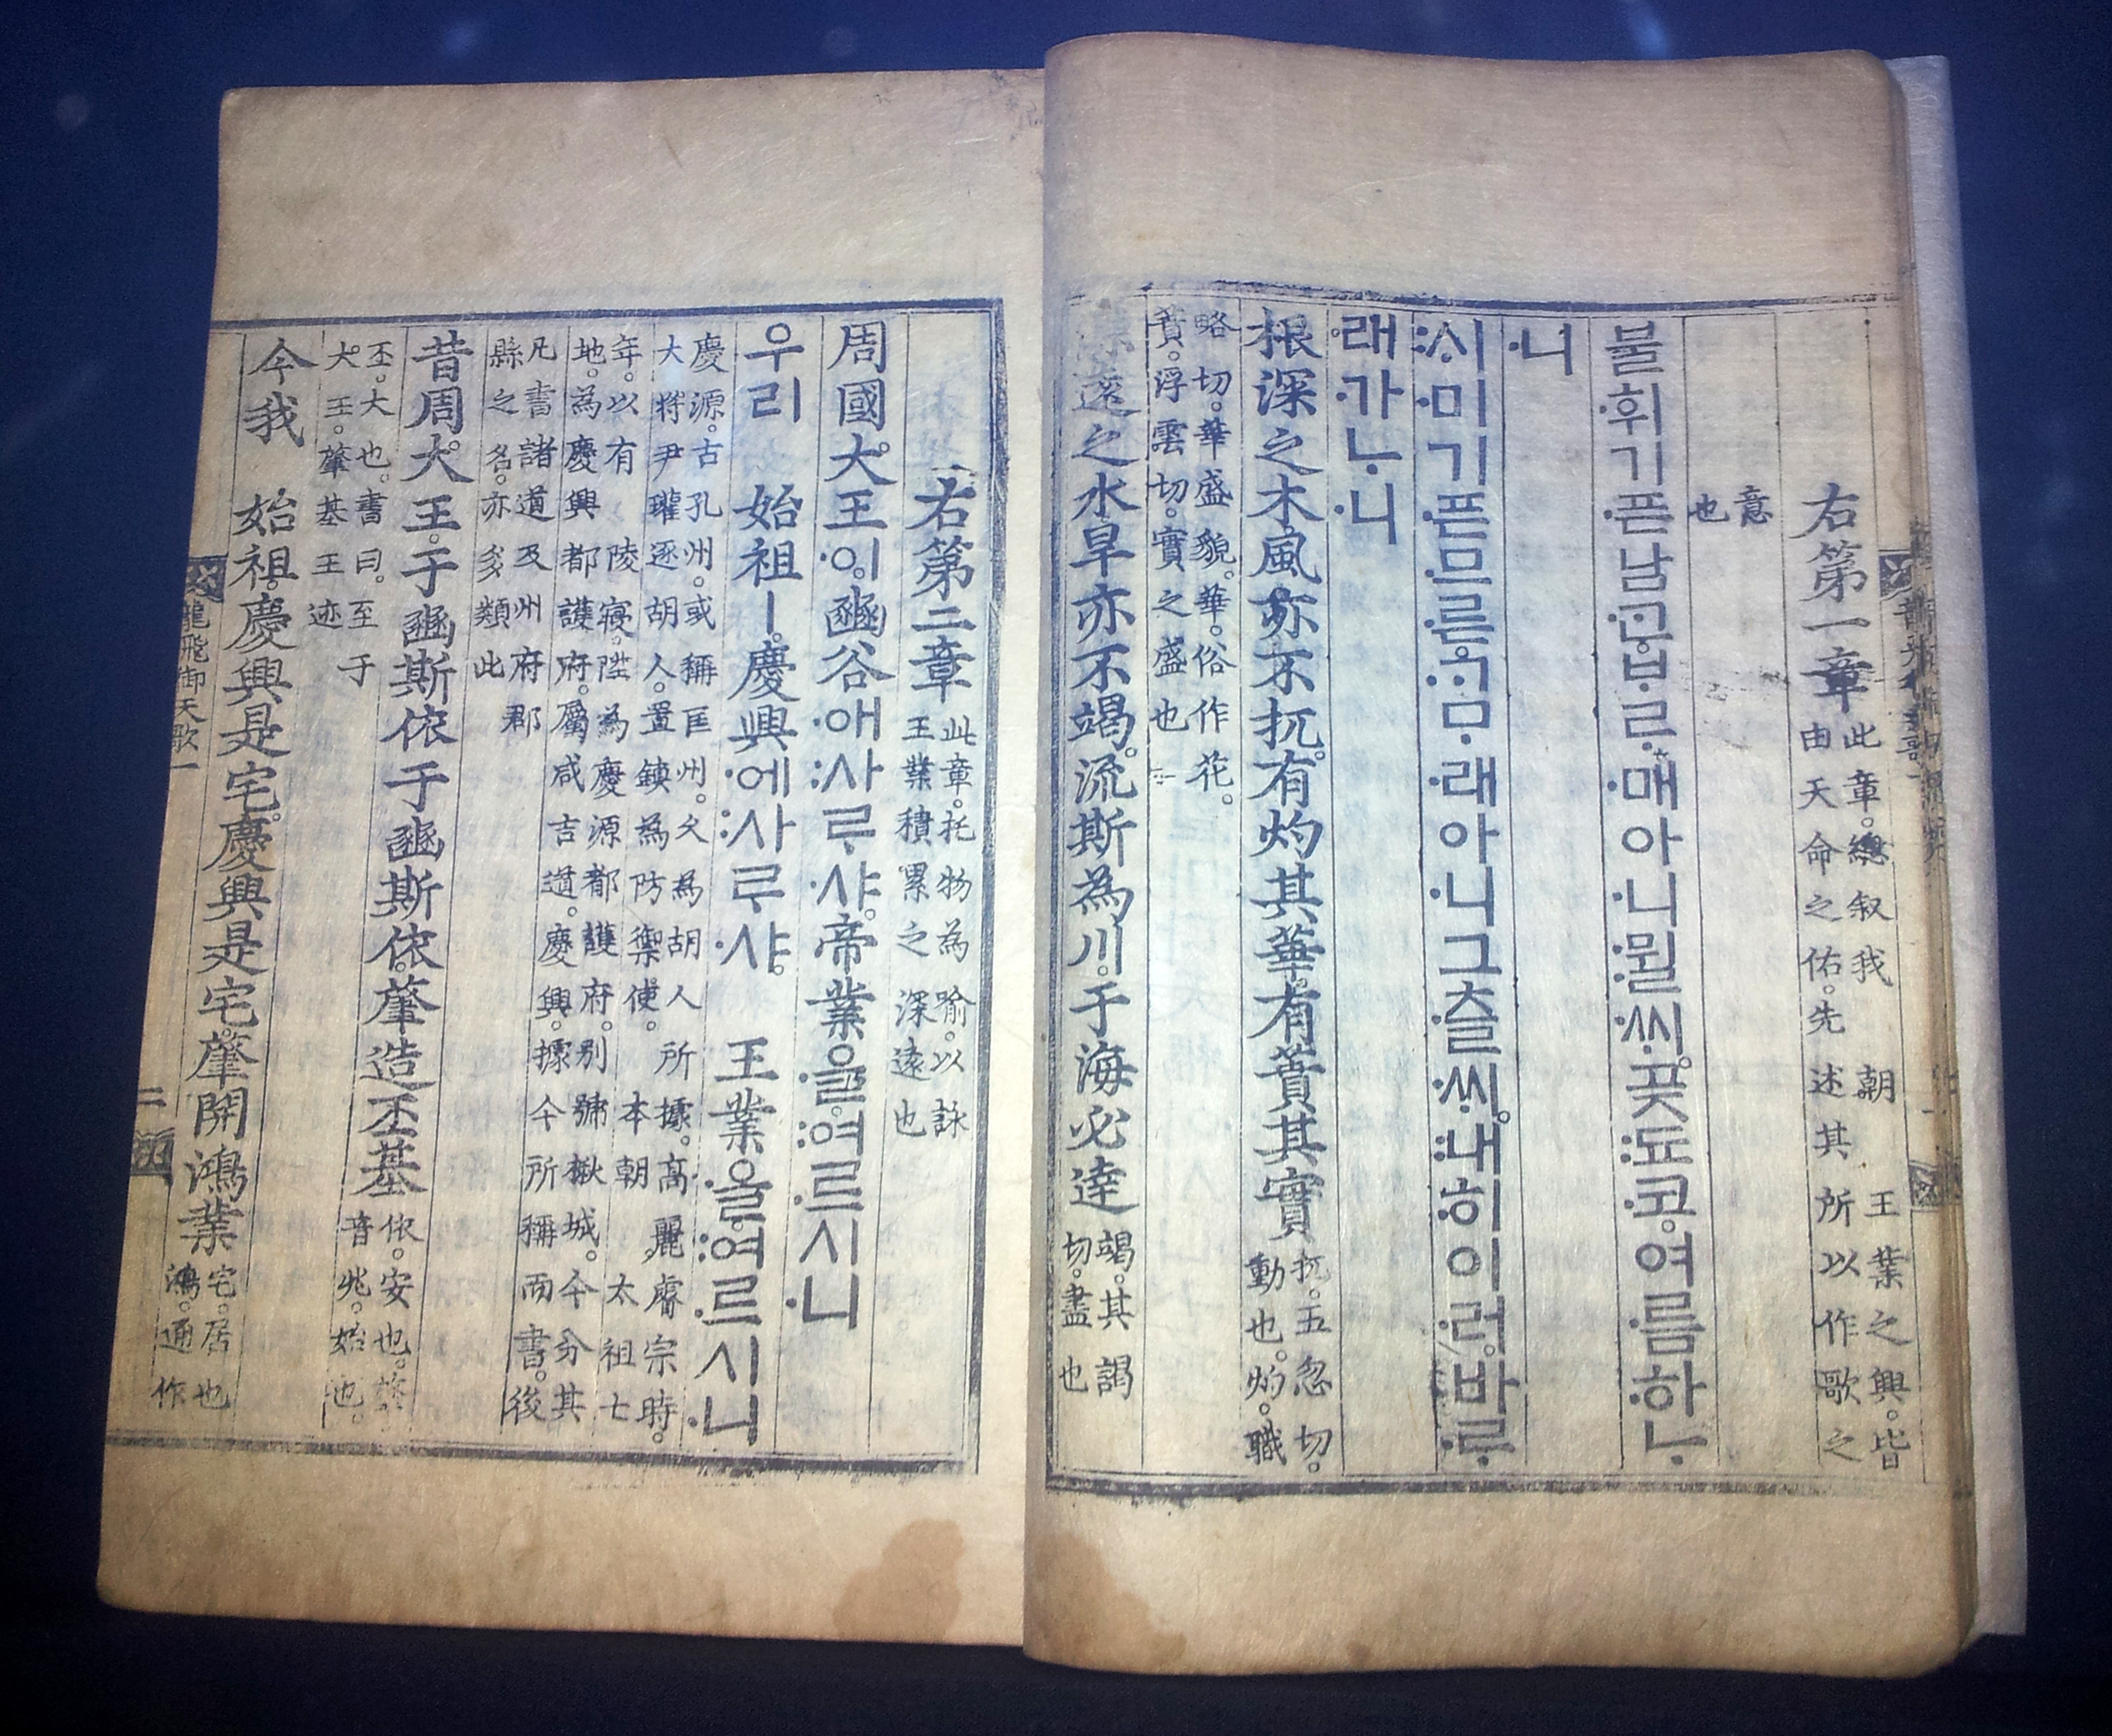 右第一章
此章。總叙我 朝 王業之興。皆
由天命之佑。先述其所以作歌之
意
也
불휘기픈남ᄀᆞᆫᄇᆞᄅᆞ매아니뮐ᄊᆡ。곶됴코。여름하ᄂᆞ
니
ᄉᆡ미기픈므른ᄀᆞᄆᆞ래아니그츨ᄊᆡ。내히이러。바ᄅᆞ
래가ᄂᆞ니
根深之木。風亦不扤。有灼其華。有蕡其實
扤。五忽切。
動也。灼。職
略切。華盛貌。華。俗作花。
蕡。浮雲切。實之盛也
源遠之水。旱亦不竭。流斯為川。于海必達
竭。其謁
切。盡也
右第二章
此章。托物為喻。以詠
王業積累之深遠也
周國大王이。豳谷애사ᄅᆞ샤。帝業을여르시니
우리 始祖ㅣ慶興에사ᄅᆞ샤。 王業을여르시니
慶源。古孔州。或稱匡州。久為胡人所據。高麗睿宗時。
大將尹瓘逐胡人。置鎮為防禦使。本朝太祖七
年。以有 陵寢。陞為慶源都護府。別號楸城。今分其
地。為慶興都護府。屬咸吉道。慶興。據今所稱而書。後
凡書諸道及州府郡
縣之名。亦多類此
昔周大王。于豳斯依。于豳斯依。肇造丕基
依。安也。肇
音兆。始也。
丕。大也。書曰。至于
大王。肇基王迹
今我 始祖。慶興是宅。慶興是宅。肇開鴻業
宅。居也
鴻。通作
龍飛御天歌一
二